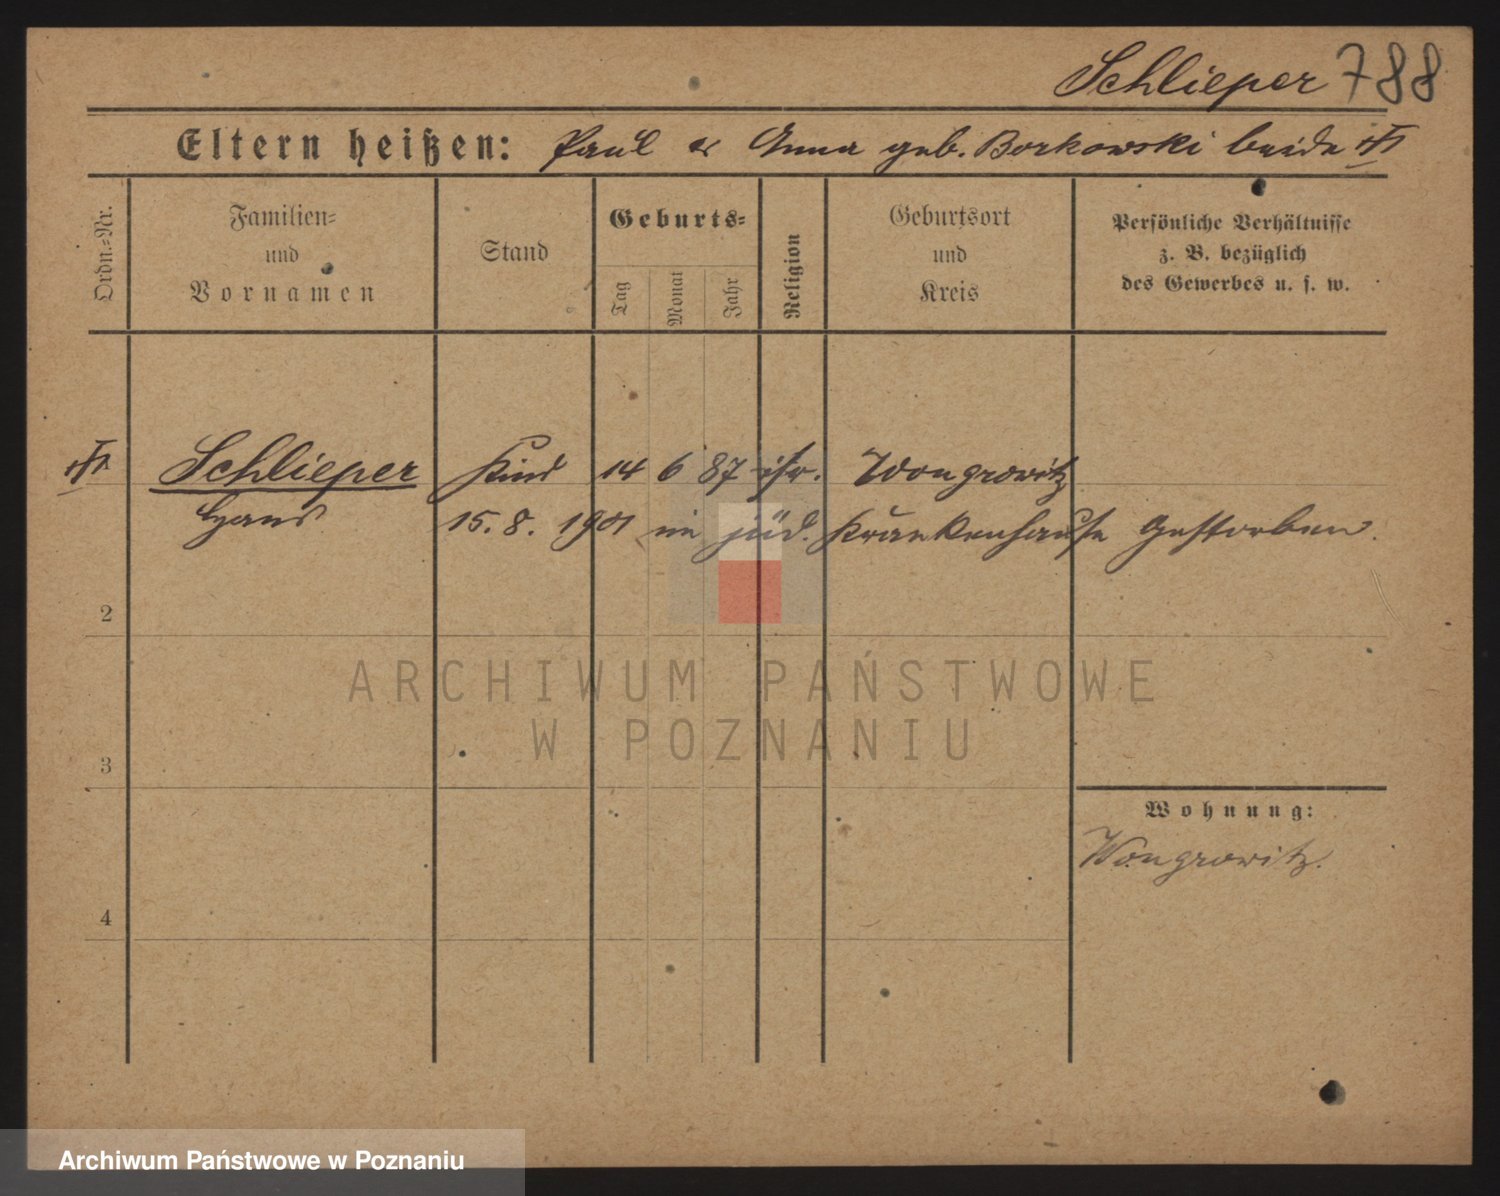 Schlieper 788
Eltern heißen: Paul u Anna geb. Borkowski beide
Ordn.=Nr.
Familien=
und
Vornamen
Stand
Geburts=
Tag
Monat
Jahr
Religion
Geburtsort
und
Kreis
Persönliche Verhältnisse
z. B. bezüglich
des Gewerbes u. s. w.
Schlieper Kind 14 6 87 isr. Wongrowitz
Hans 15. 8. 1901 im jüd. Krankenhause gestorben.
2
3
4
Wohnung:
Wongrowitz.
ARCHIWUM PAŃSTWOWE
W POZNANIU
Archiwum Państwowe w Poznaniu